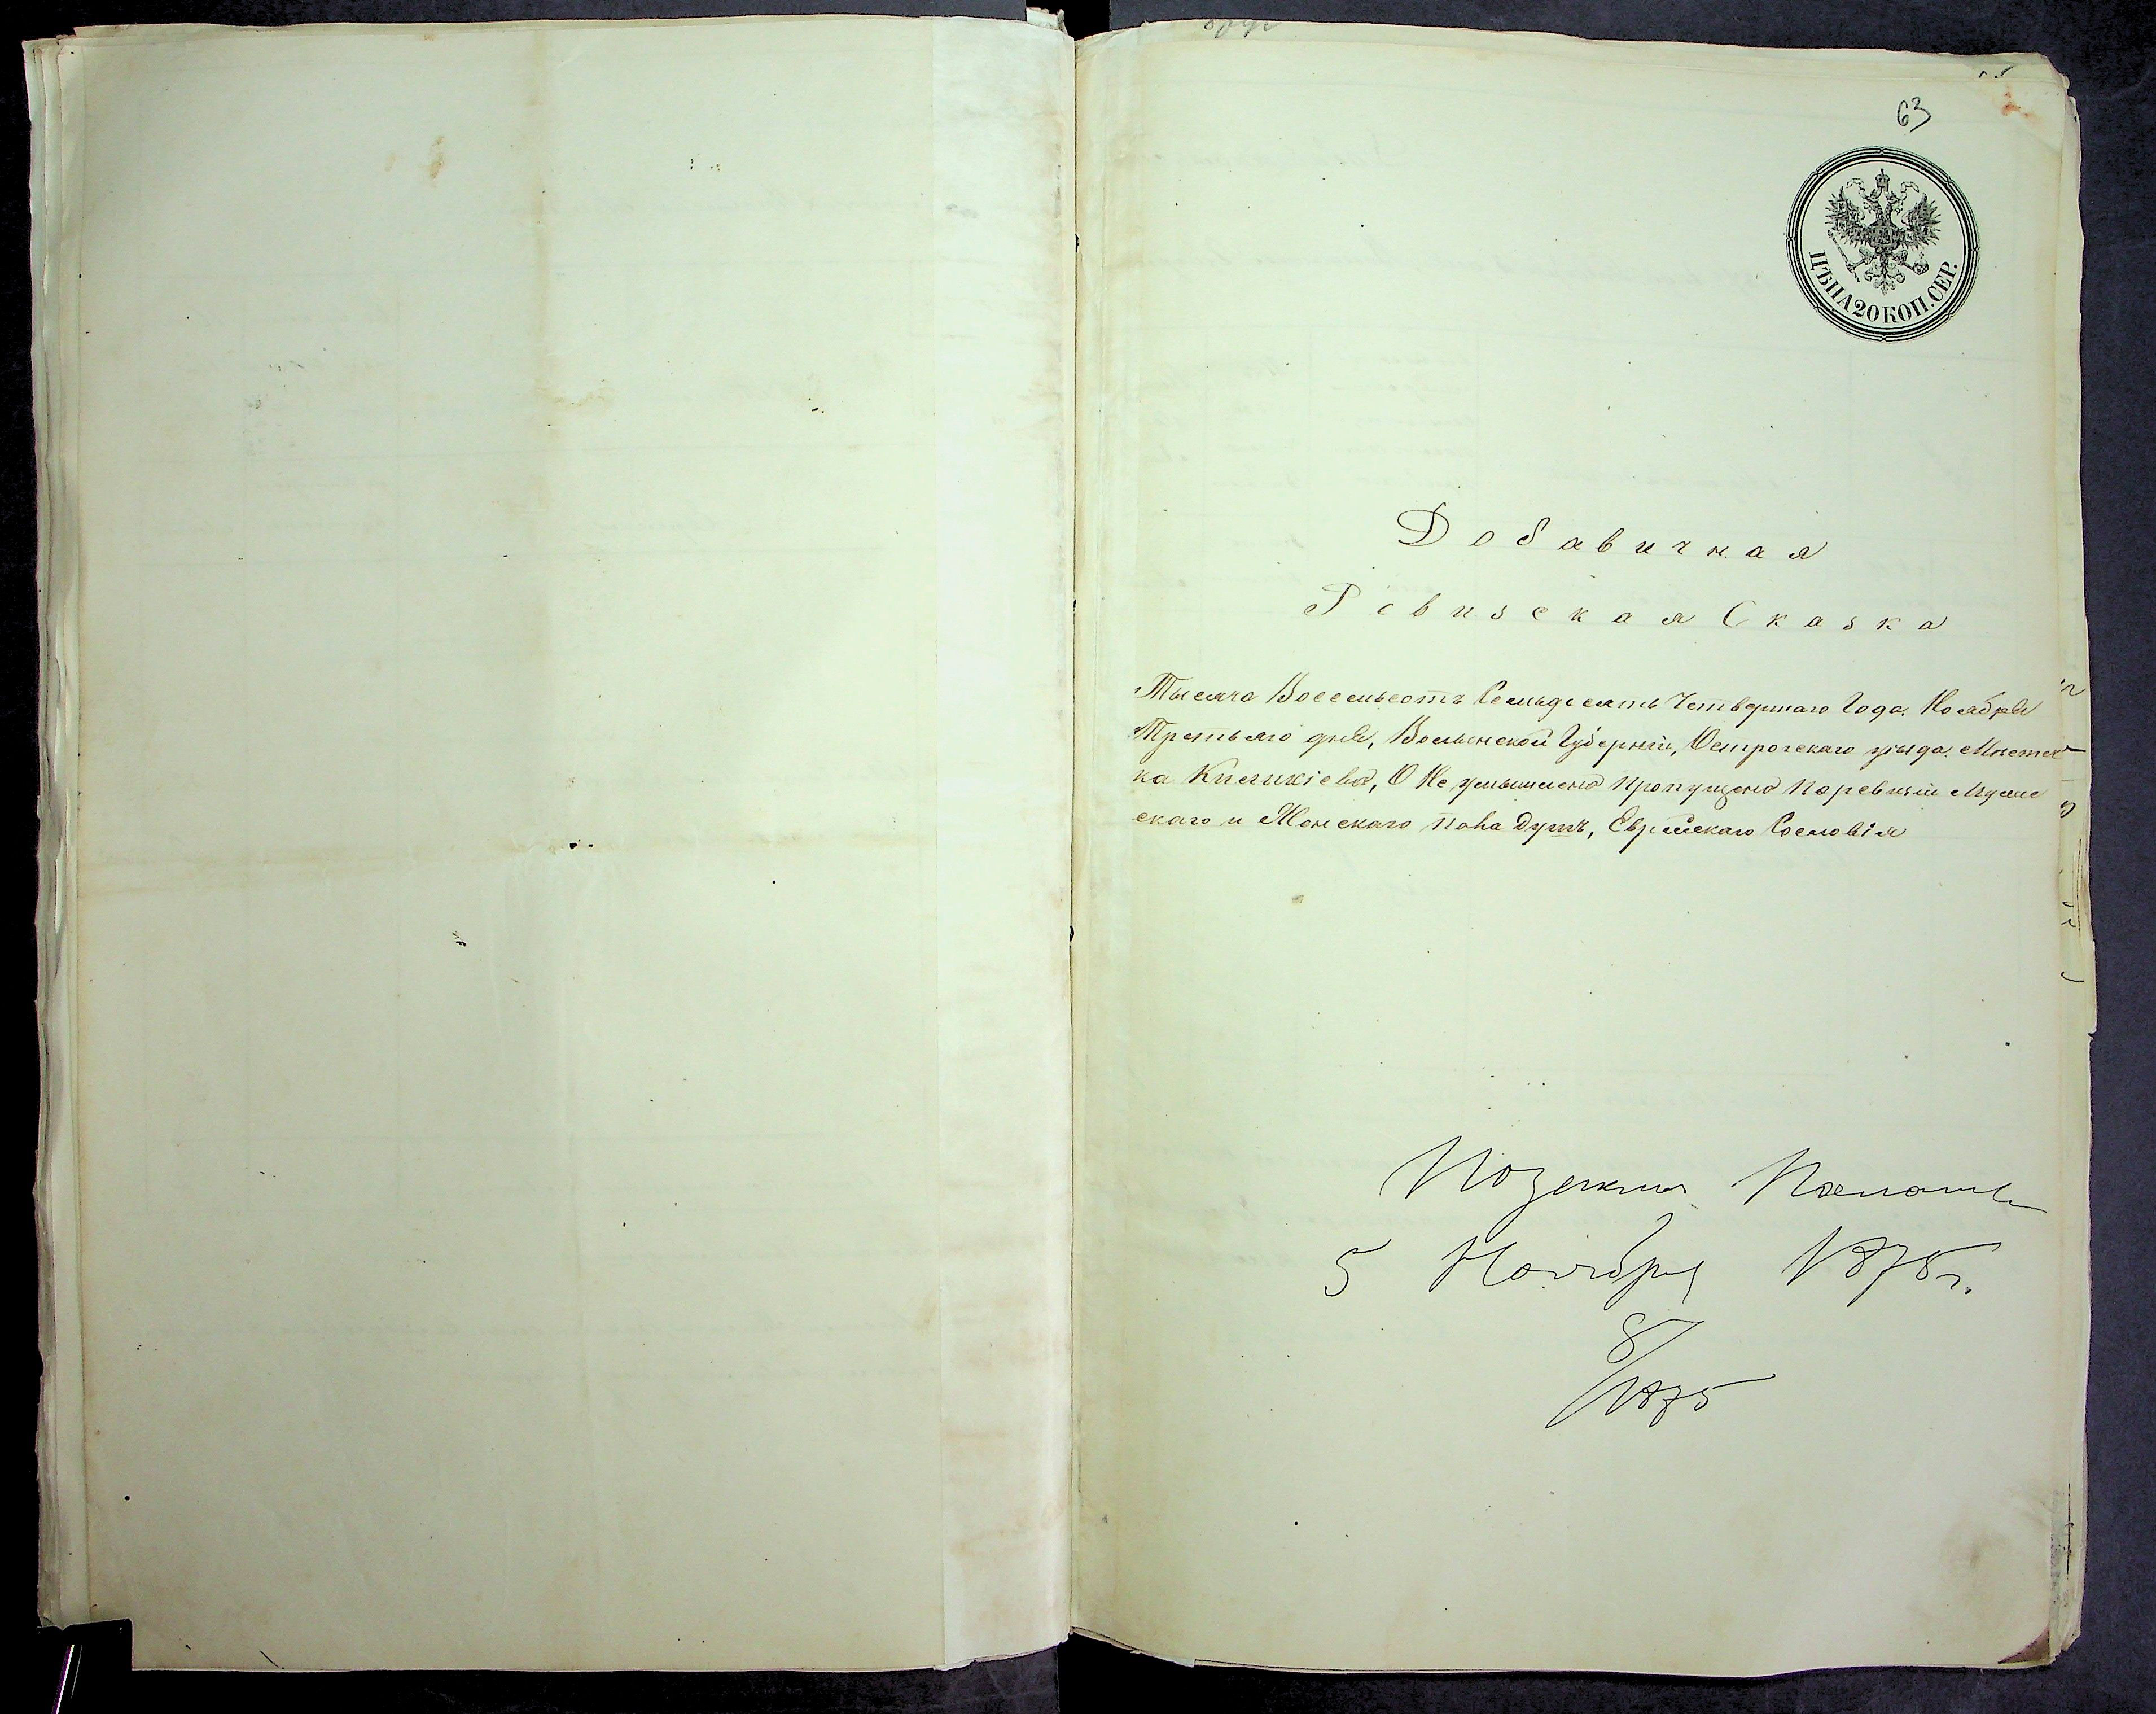 63
ЦѢНА 20 КОП. СЕР.
Добавичная
Ревизская Сказка
Тысяча Восемьсотъ Семьдесять Четвертаго Года. Ноября
Третьяго дня, Волынской Губерніи, Острогскаго уѣзда. Мѣстеч-
ка Киликіева, О Не умышлено пропущено Поревизіи Муже
скаго и Женскаго пола Душъ, Еврейскаго Сословія
Палаты
5 Ноября 1875 г.
8/1875